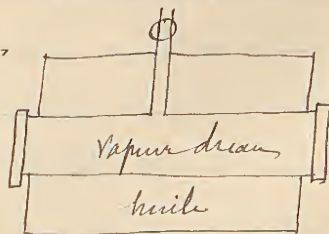 vapeur d'eau
huile